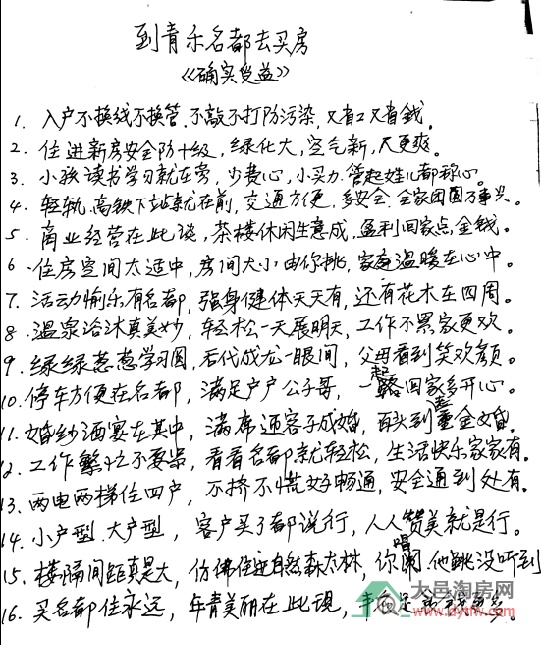 到青乐名都去买房
《确实受益》
1. 入户不换线不换管、不敲不打防污染，又省工又省钱。
2. 住进新房安全防十级，绿化大，空气新，天更爽。
3. 小孩读书学习就在旁，少费心，小买力，管起姓儿都称心。
4. 轻轨、高铁下站就在前，交通方便，多安全，全家团圆万事兴。
5. 商业经营在此谈，茶楼休闲生意成，盈利回家点金钱。
6. 住房空间太适中，房间大小由你挑，家庭温暖在心中。
7. 活动愉乐有名都，强身健体天天有，还有花木在四周。
8. 温泉浴沐真美妙，轻松一天展明天，工作不累家更欢。
9. 绿绿葱葱学习园，后代成龙一眼间，父母看到笑欢颜。
10. 停车方便在名都，满足户户公子哥，一起路回家多开心。
11. 婚纱酒宴在其中，满席通客子成婚，百头到金婚。
12. 工作繁忙不要紧，看看名都就轻松，生活快乐家家有。
13. 两电两梯住四户，不挤不慌好畅通，安全通到处有。
14. 小户型、大户型，客户买了都说行，人人赞美就是行。
15. 楼隔间距真是大，仿佛住进自然森太林，你唱闹、他跳没听到
16. 买名都住永远，年青美丽在此现，丰
大邑淘房网